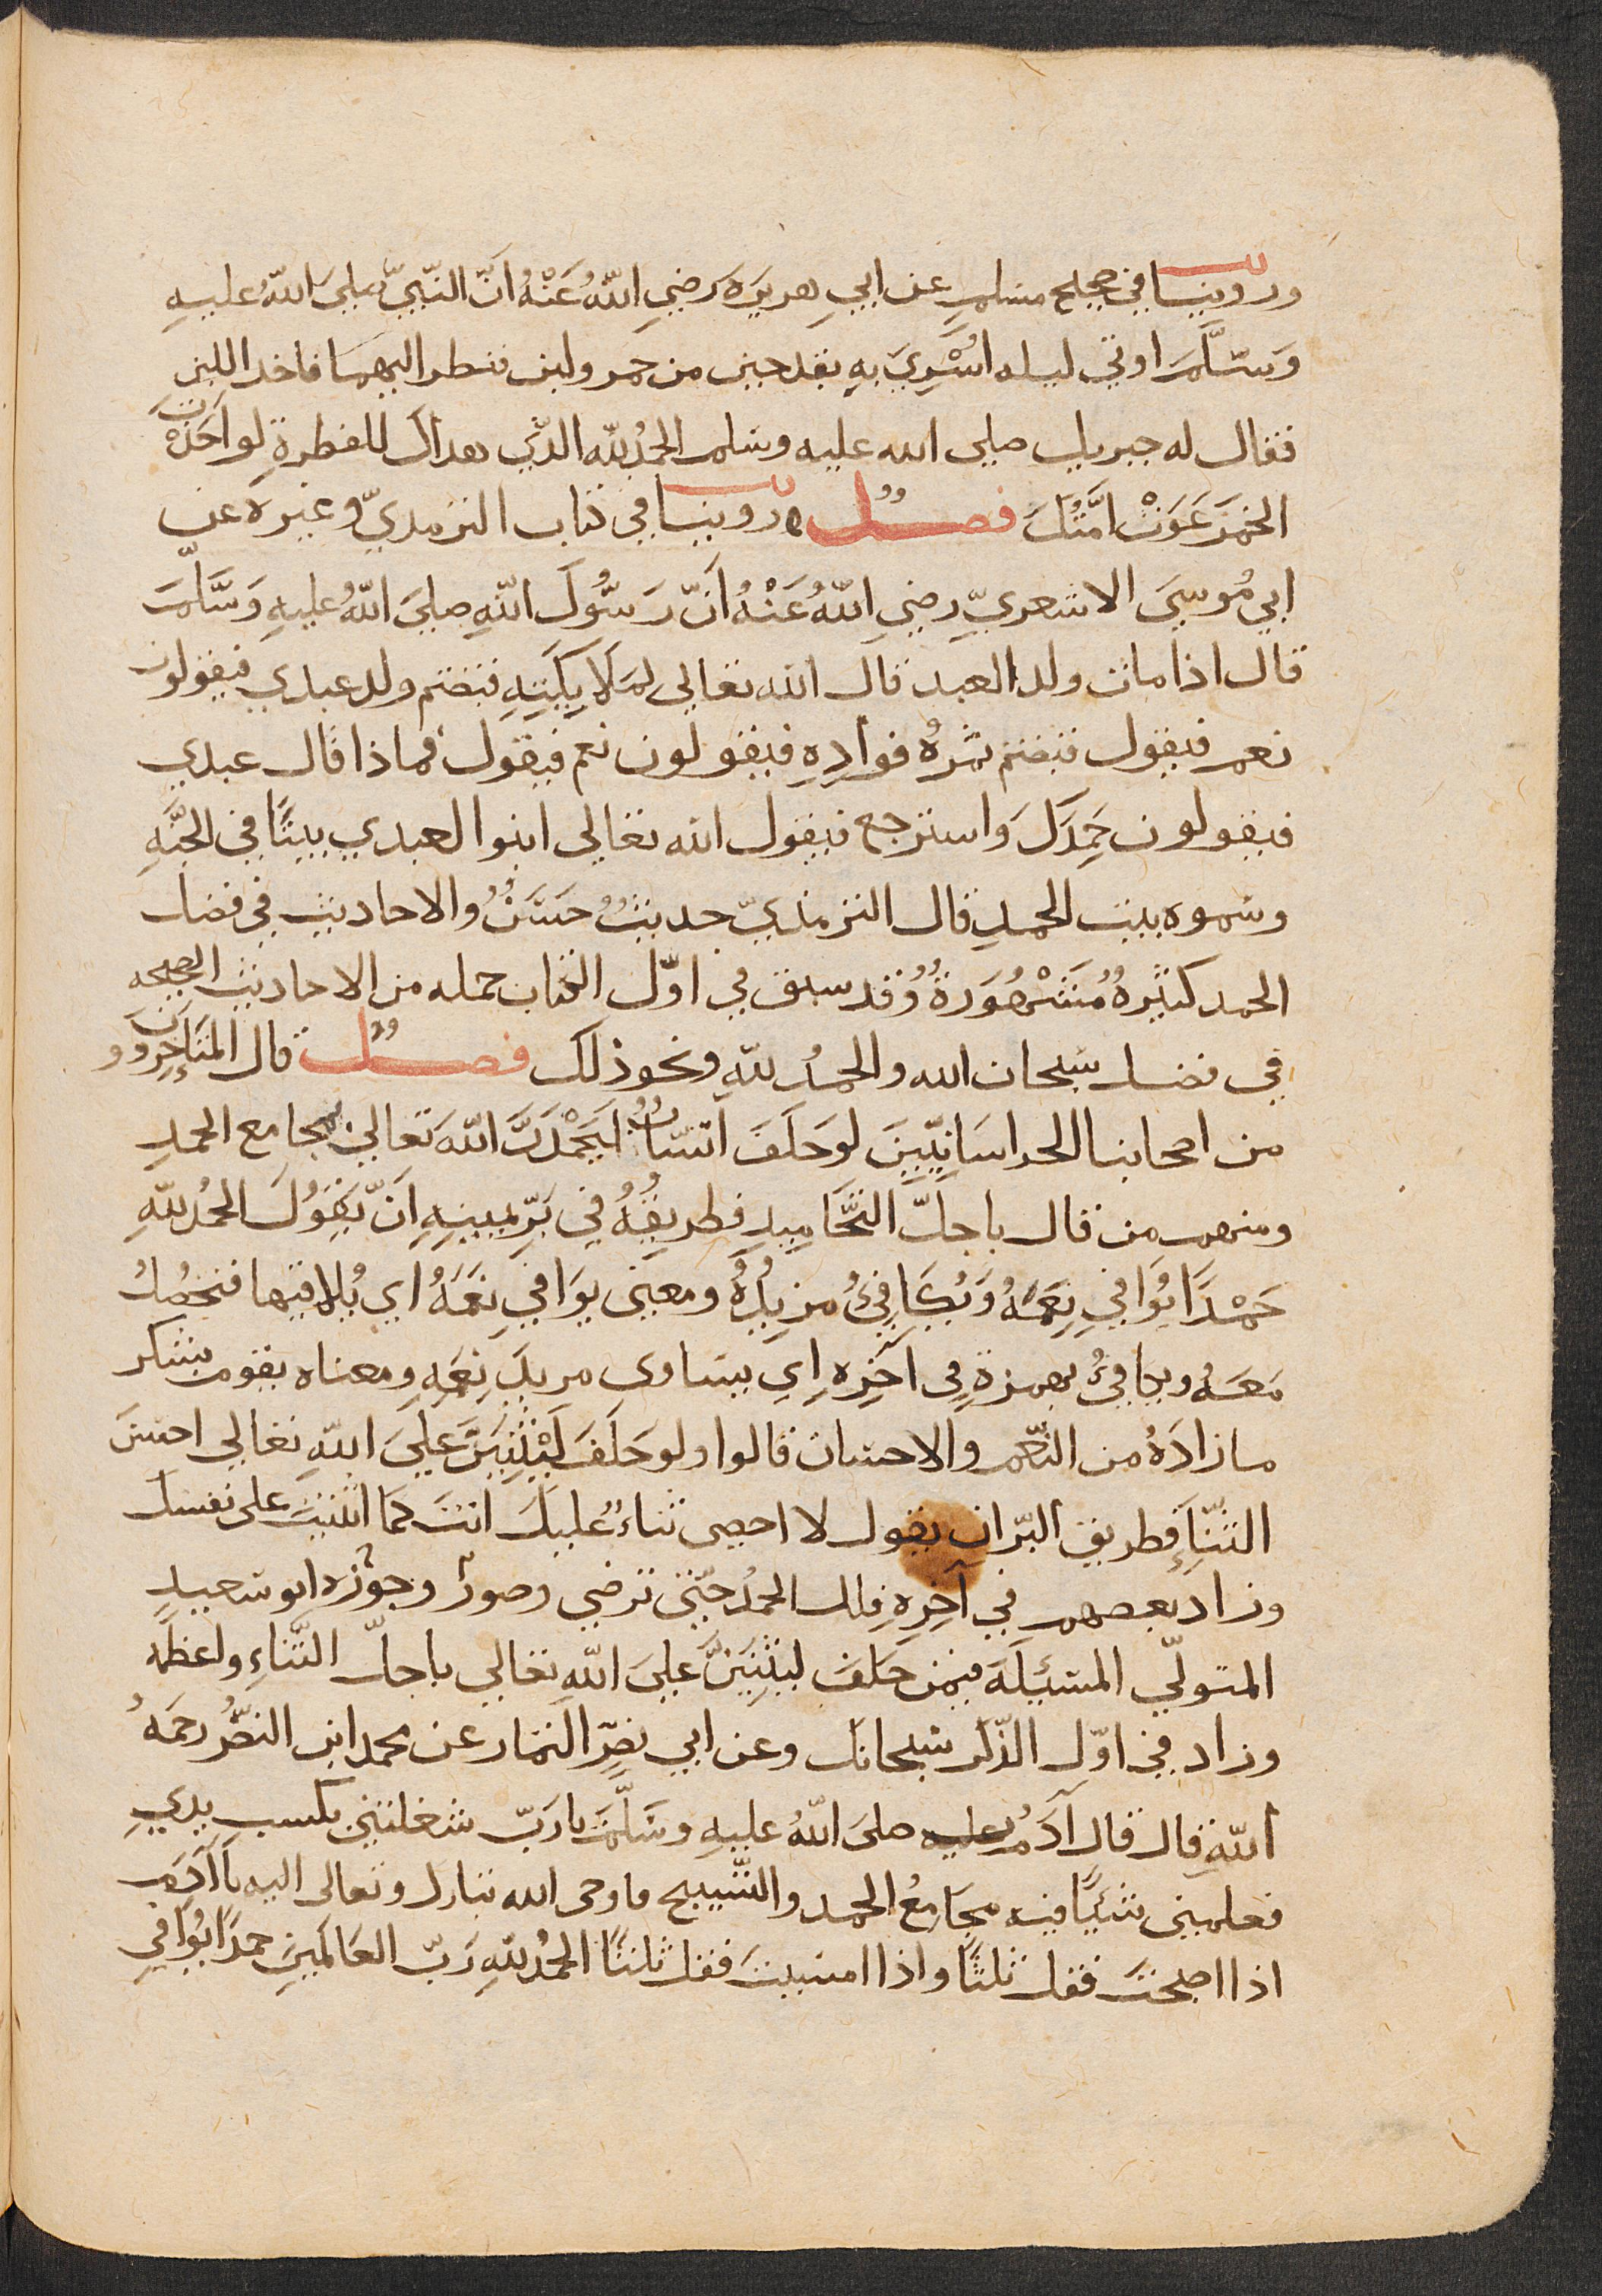 وروينا في صحيح مسلم عن ابي هريرة رضي اللّهُ عَنْهُ انّ النّبيّ صلى اللّهُ عليهِ
وَسَلَّمَ اوتي ليله اُسْرِيَ بهِ بقدحين من خمر ولبن فنظر اليهما فاخد اللبن
فقال له جبريل صلى الله عليه وسلم الحمدُ للّه الدّي هداك للفطرةِ لو اَخَدْتَ
الخمرَ غَوَتْ امَّتُكَ فصلٌ وروينا في كتاب الترمديّ وغيره عن
ابي مُوسىَ الاشعريّ رضي اللّهُ عَنْهُ انّ رَسُولَ اللّهِ صلىَ اللّهُ عليهِ وَسَلَّمَ
قال اذا مات ولد العبد قال الله تعالى لمَلَايِكَتِهِ قبضتم ولد عبدي فيقولون
نعم فيقول قبضتم ثمرةُ فوادِهِ فيقولون نعم فيقول فماذا قال عبدي
فيقولون حَمِدَكَ وَاسترجع فيقول الله تعالى ابنوا لعبدي بيتًا في الجَنَّهِ
وسموه بيت الحمدِ قال الترمذيّ حديثٌ حَسَنٌ والاحاديث في فضل
الحمد كثيرةٌ مُشْهُورَةٌ وَقد سبق في اوّل الكتاب جمله من الاحاديث الصحيحه
في فضل سبحان الله والحمدُ للّهِ ونحو ذلك فصلٌ قال المتَاَخِرُونَ
من اصحابنا الخراسَانِيّينَ لو حَلَفَ انسَانٌ ليَحْمَدَنَّ اللّهَ تعالىَ بمجامع الحمدِ
ومنهم من قال باجلّ التَّحَامِيدِ فطريقُهُ في بَرِّ يمينِهِ اَنّ يَقُولَ الحمدُ للّهِ
حَمْدًا يُوَافي نِعَمَهُ وَيُكَافِئُ مزيدُهُ ومعنى يوَافي نِعَمَهُ اي يُلاقيها فتحصُلُ
مَعَهُ ويكافئُ بهمزةٍ في آخِرِه اي يساوى مزيدَ نِعَمِهِ ومعناه يقوم بشكر
ما زادَهُ من النّعم والاحسان قالوا ولو حَلَفَ لَيُثْنِيَنَّ علىَ اللّهِ تعالى احسَنَ
الثّنآءِ فطريق البّر ان يقول لا احصى ثناءً عليكَ انتَ كمَا اثنيتَ على نفسك
وزاد بعضهم في آخِرِهِ فلك الحمدُ حتّى ترضي وصورَ وجوّزه ابو سعيدٍ
المتولّي المسئَلَهَ فيمن حَلَفَ ليثنِيَنَّ علىَ اللّهِ تعالى باجلّ الثّناءِ واعظَمه
وزاد في اوّل الذّكر سبحانك وعن ابي نصرٍ التمار عن محمد ابن النضر رحمَهُ
اللّهِ قال قال آدَمُ عليه صلىَ اللّهُ عليهِ وسَلَّمَ يارَبّ شغلتني بكسب يدي
فعلمني شيئًا فيه مجَامعُ الحمد والتّسبيح فاوحى الله تبارك وتعالى اليه يَا آدَمُ
اذا اصبحتَ فقل ثلثًا واذا امسيتَ فقل ثلثًا الحمدُ للّهِ رَبّ العَالَمينَ حمدًا يُوَافي